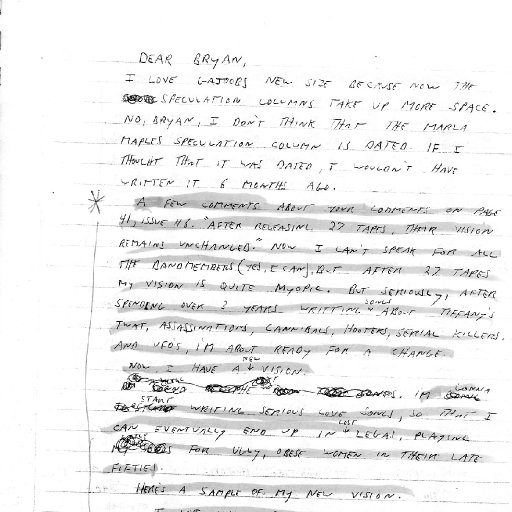 DEAR BRYAN,
I LOVE GAJOOBS NEW SIZE BECAUSE NOW THE
SPECULATION COLUMNS TAKE UP MORE SPACE.
NO, BRYAN, I DON'T THINK THAT THE MARLA
MAPLES SPECULATION COLUMN IS DATED. IF I
THOUGHT THAT IT WAS DATED, I WOULDN'T HAVE
WRITTEN IT 6 MONTHS AGO.
A FEW COMMENTS ABOUT YOUR COMMENTS ON PAGE
41, ISSUE #8. "AFTER RELEASING 27 TAPES, THEIR VISION
REMAINS UNCHANGED" NOW I CAN'T SPEAK FOR ALL
THE BANDMEMBERS (YES, I CAN), BUT AFTER 27 TAPES
MY VISION IS QUITE MYOPIC. BUT SERIOUSLY, AFTER
SPENDING OVER 3 YEARS WRITTING SONGS ABOUT TIFFANY'S
TWAT, ASSASSINATIONS, CANNIBALS, HOOTERS, SERIAL KILLERS,
AND UFOS, I'M ABOUT READY FOR A CHANGE.
NOW, I HAVE A NEW VISION.
I'M GONNA
START WRITING SERIOUS LOVE SONGS, SO THAT I
CAN EVENTUALLY END UP IN LOST VEGAS, PLAYING
FOR UGLY, OBESE WOMEN IN THEIR LATE
FIFTIES.
HERE'S A SAMPLE OF MY NEW VISION.